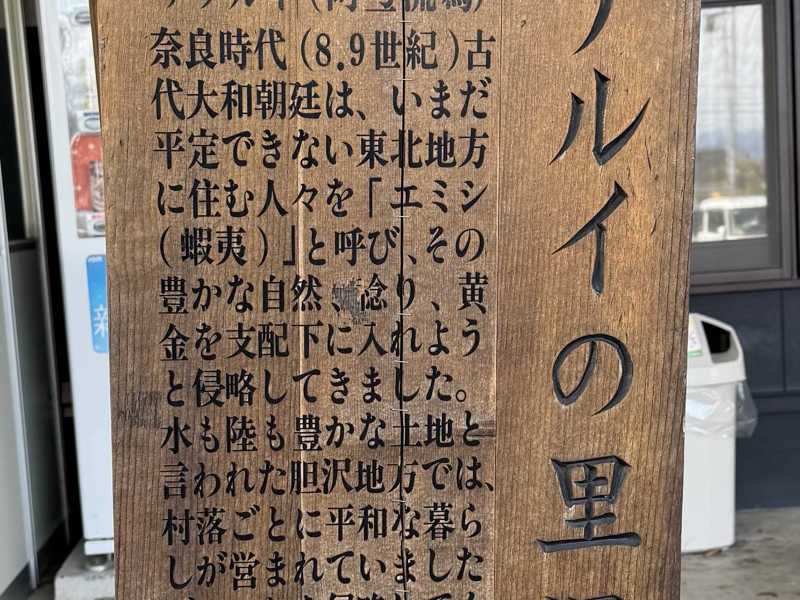 ルイの里
奈良時代(8.9世紀)古
代大和朝廷は、いまだ
平定できない東北地方
に住む人々を「エミシ
(蝦夷)」と呼び、その
豊かな自然、念り、黄
金を支配下に入れよう
と侵略してきました。
水も陸も豊かな土地と
言われた胆沢地方では、
村落ごとに平和な暮ら
しが営まれていました
新